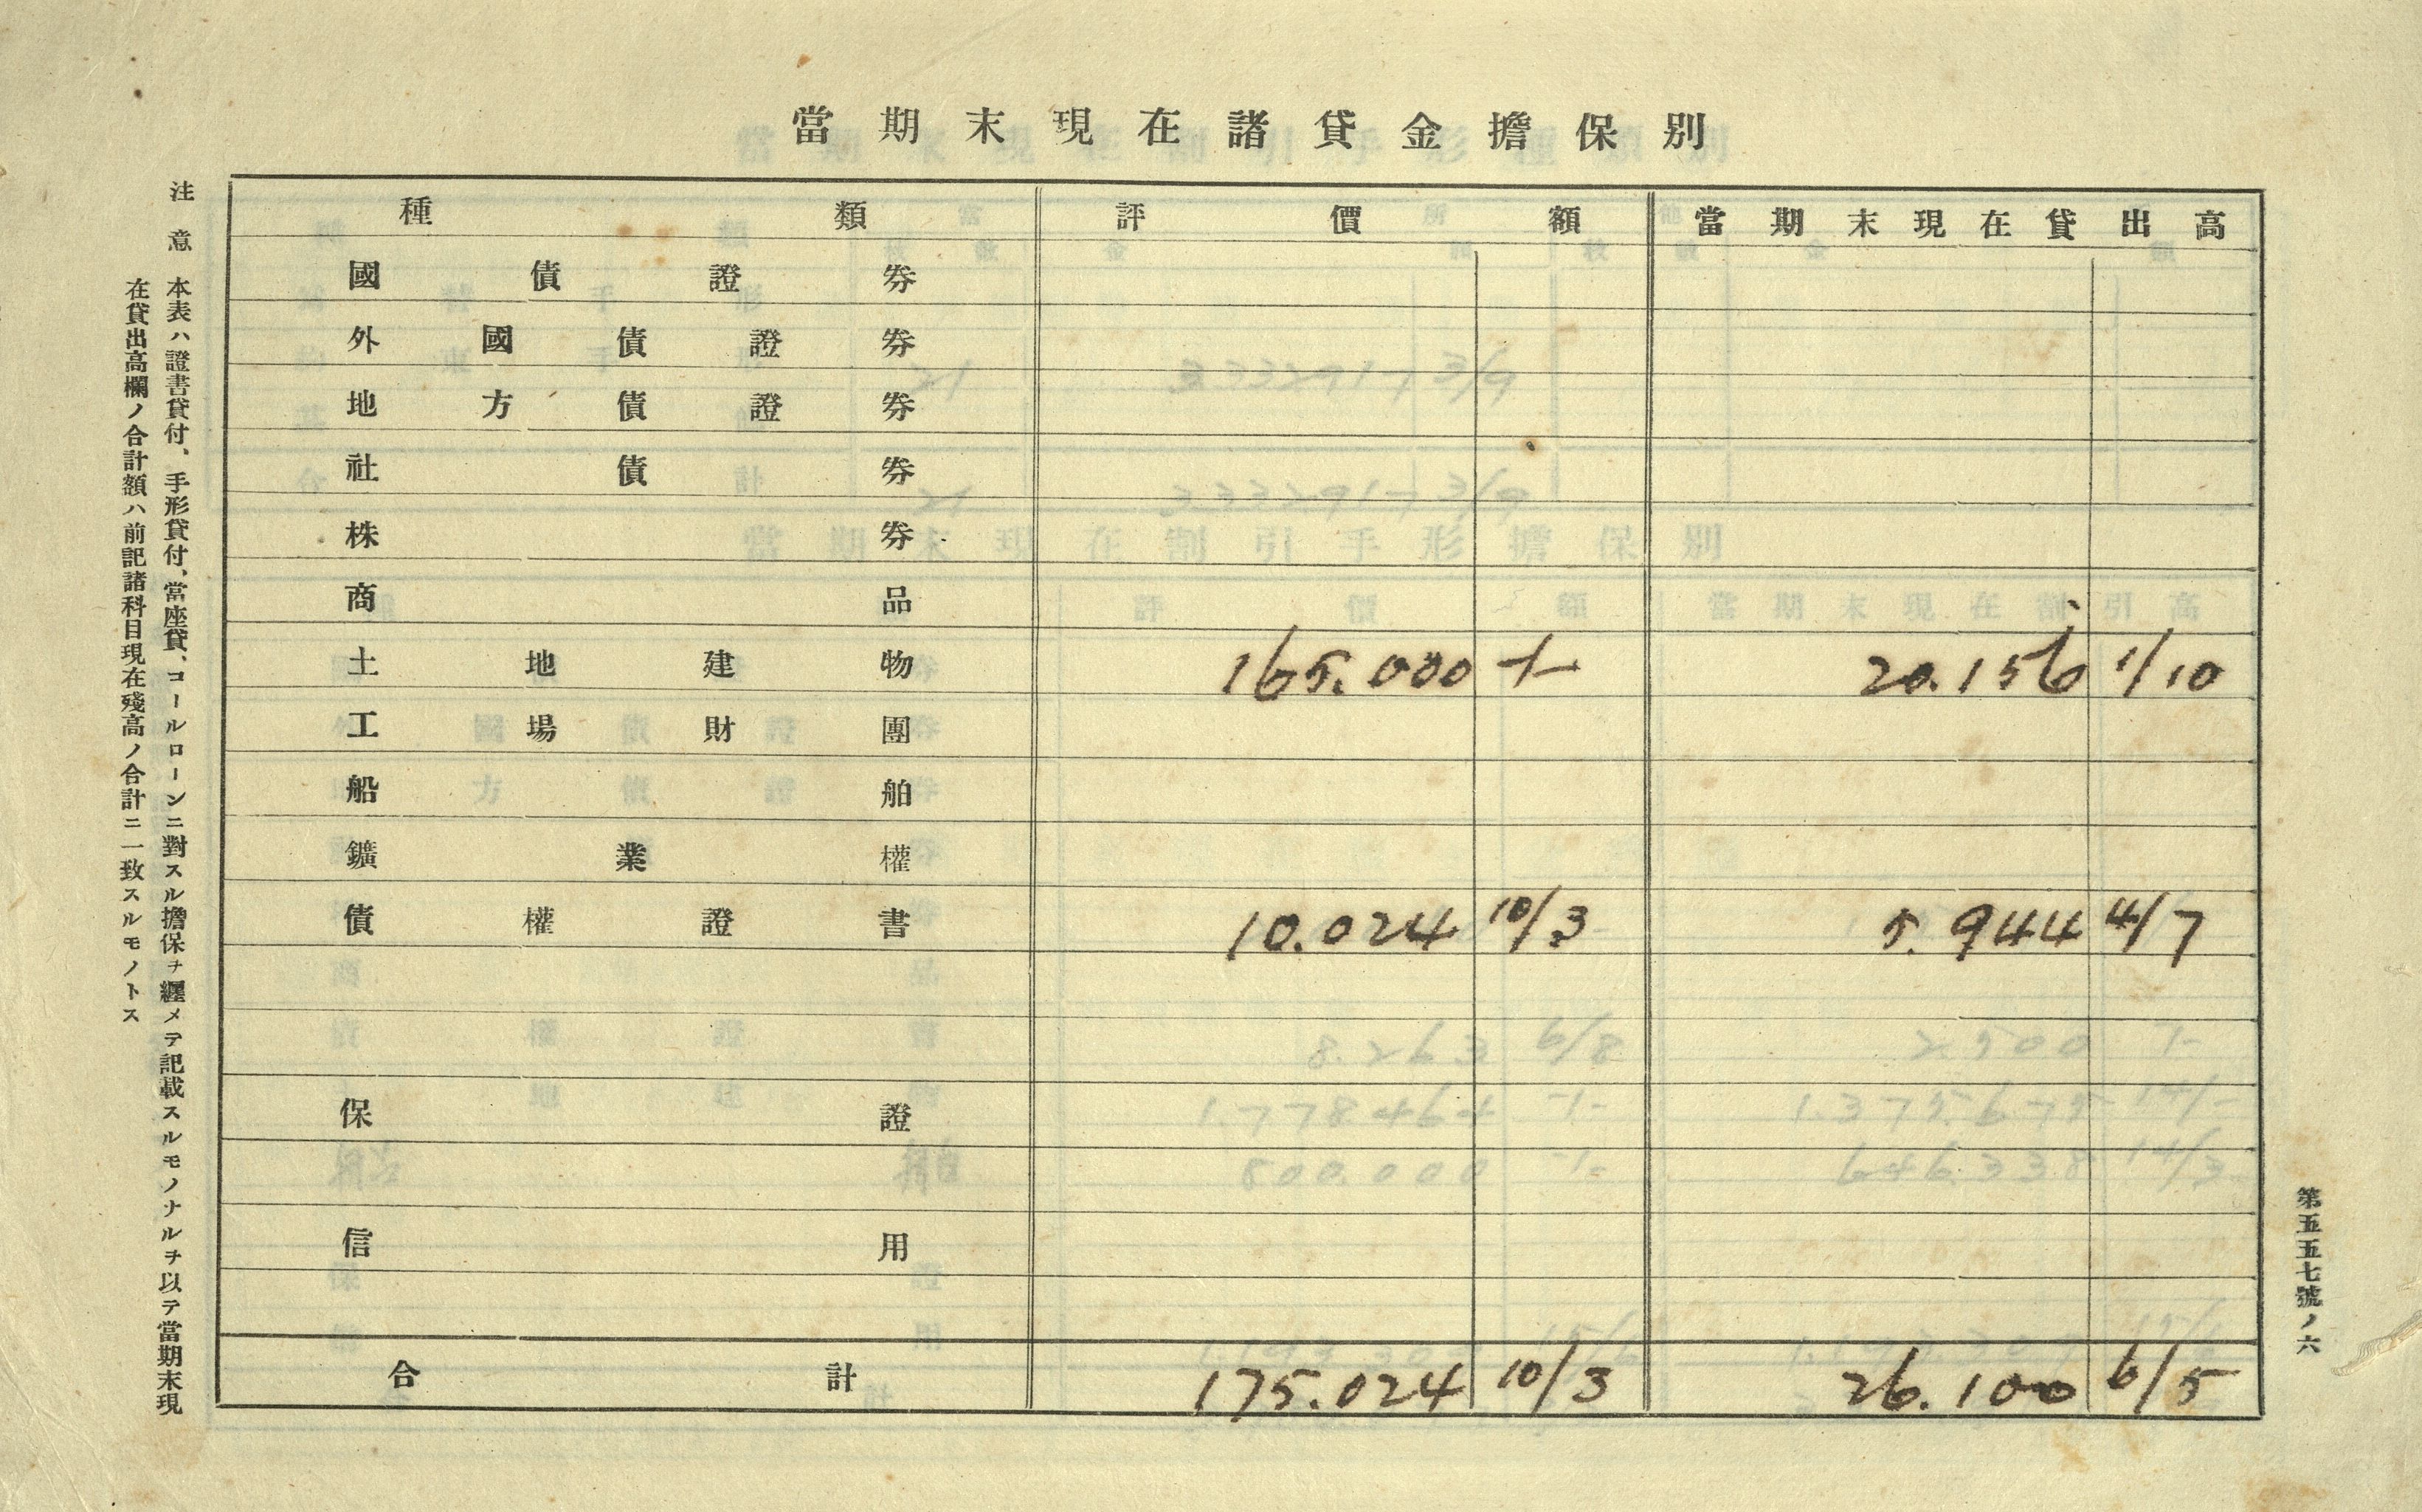 當期末現在諸貸金擔保別
種類 評價額 當期末現在貸出高
國債證券
外國債證券
地方債證券
社債券
株券
商品
土地建物 165.000 20.156 1/10
工場財團
船舶
鑛業權
債權證書 10.024 10/3 5.944 4/7
保證
信用
合計 175.024 10/3 26.100 6/5
第五五七號ノ六
注意
本表ハ證書貸付、手形貸付、當座貸、コールローンニ對スル擔保ヲ纒メテ記載スルモノナルヲ以テ當期末現
在貸出高欄ノ合計額ハ前記諸科目現在殘高ノ合計ニ一致スルモノトス